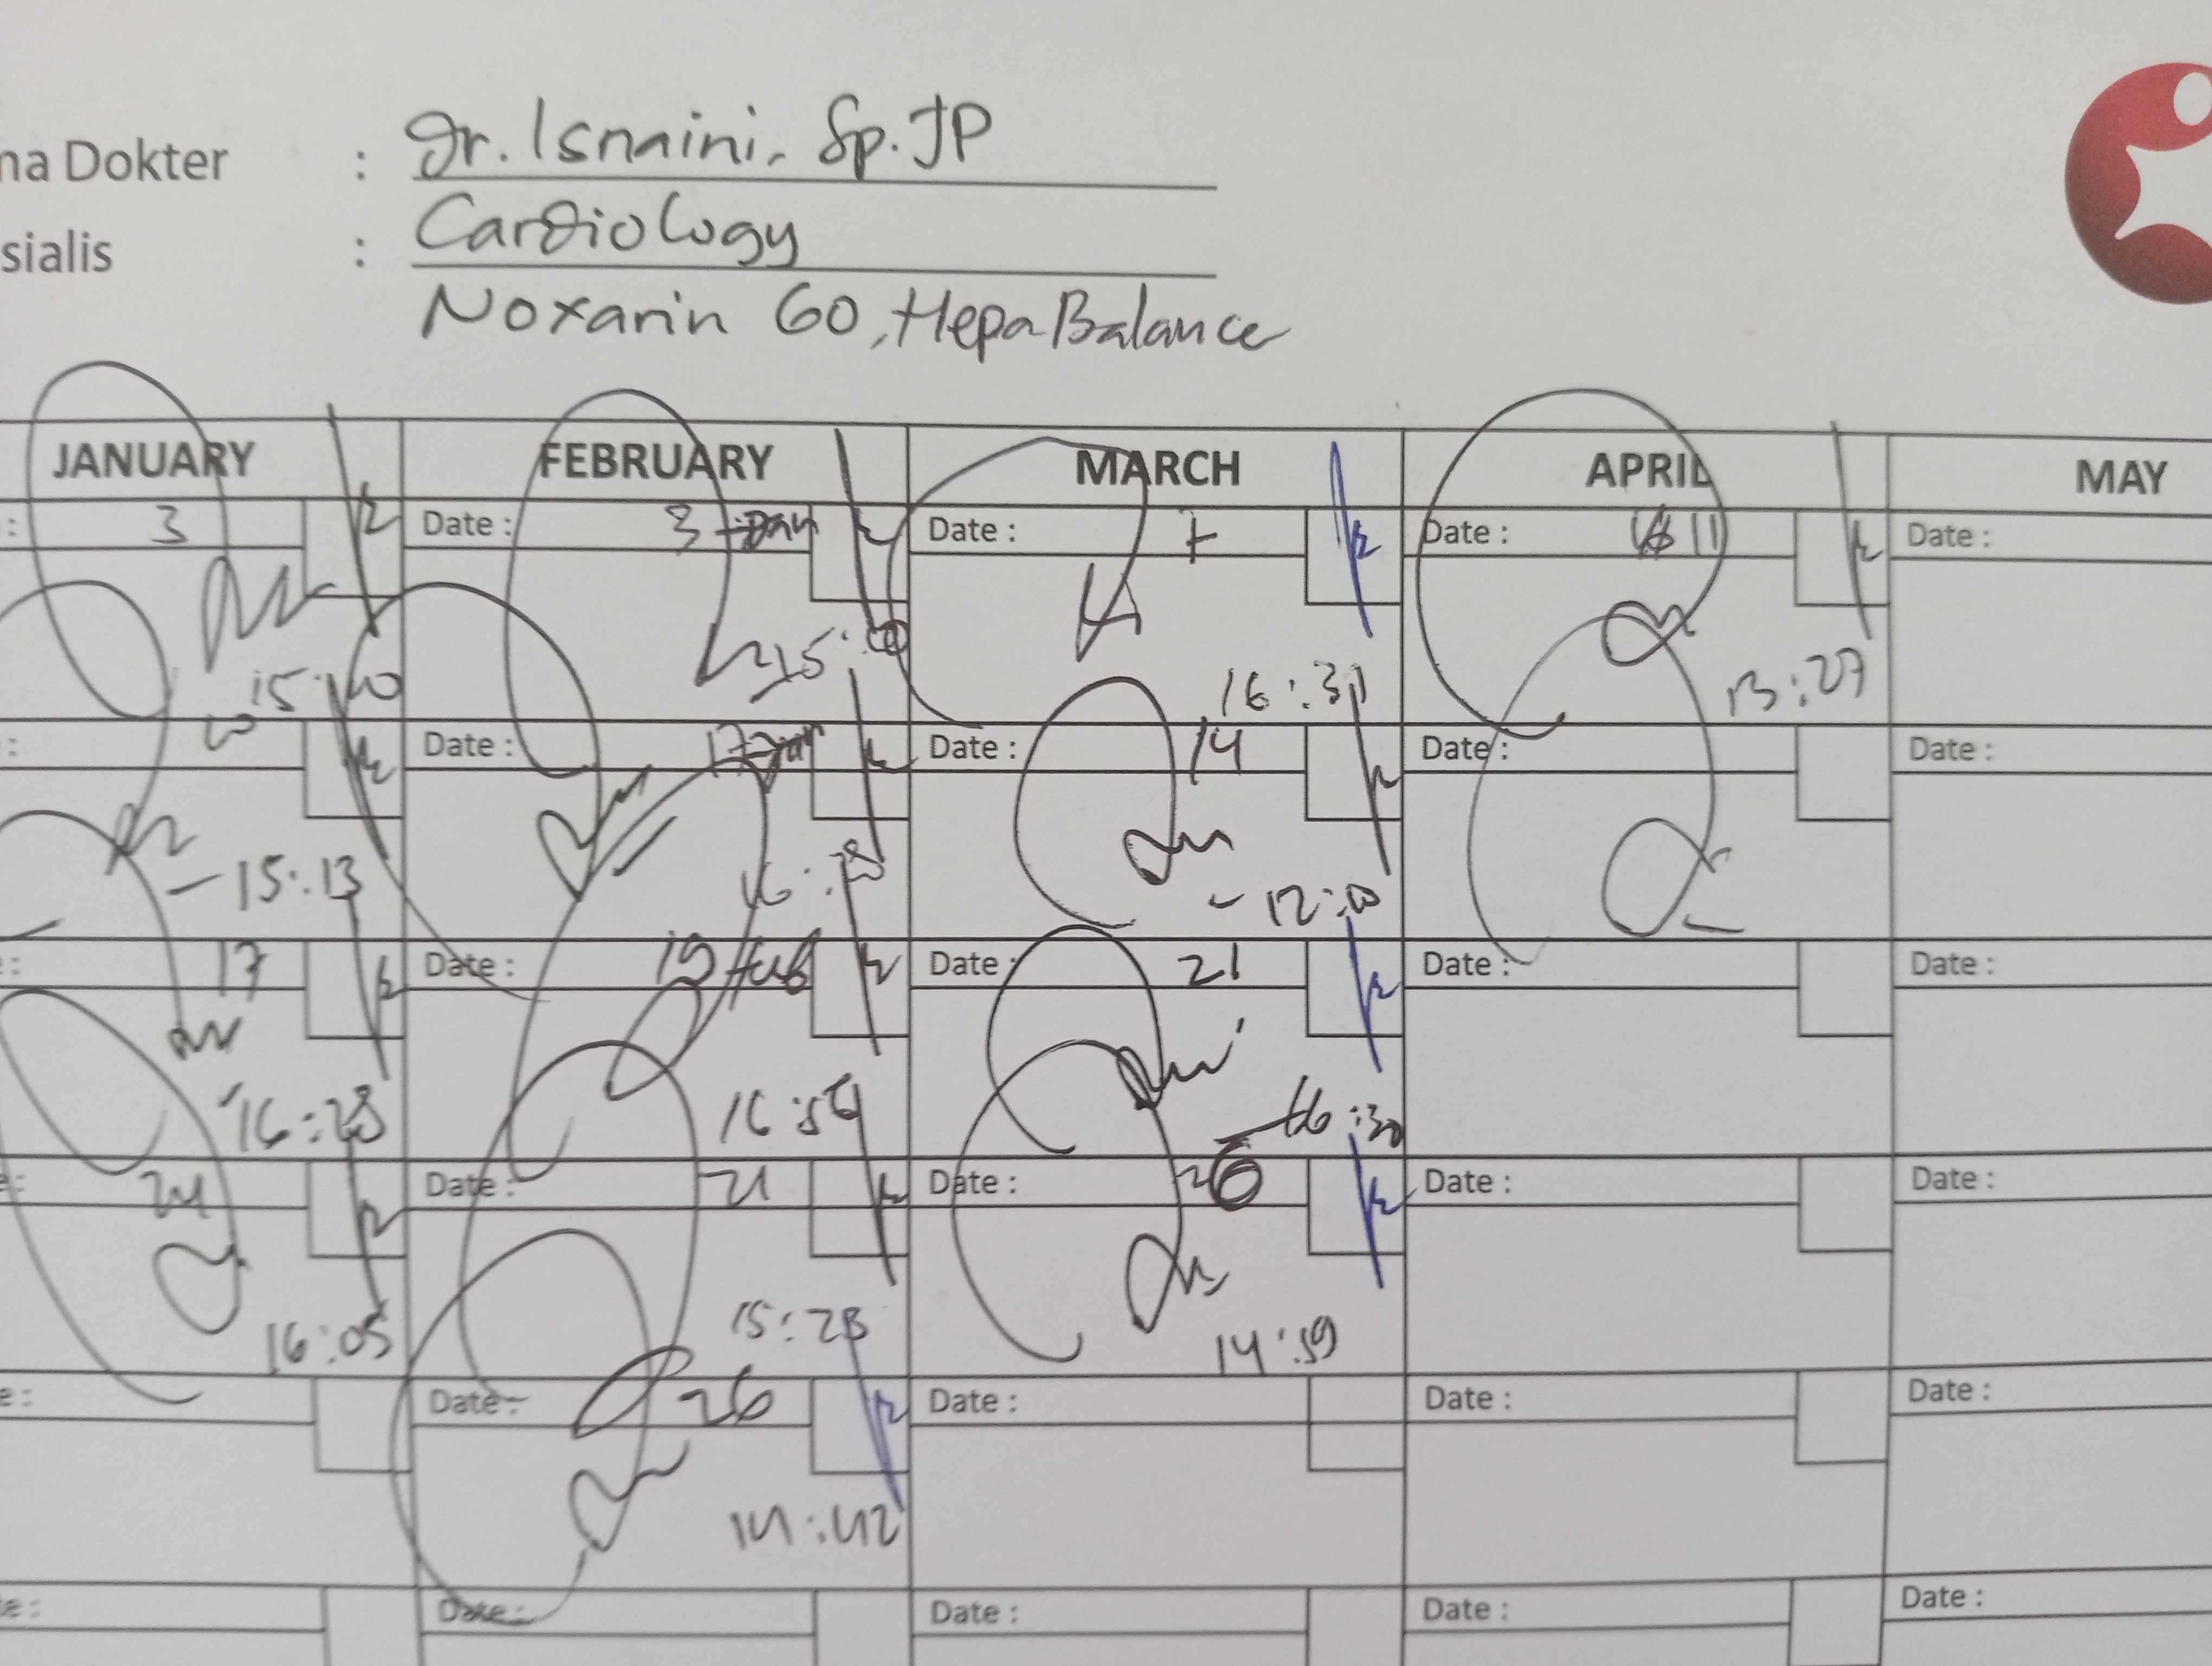 na Dokter : Dr. Isnaini, Sp.JP
sialis : Cardiology
Noxarin 60, HepaBalance
JANUARY FEBRUARY MARCH APRIL MAY
: 3 Date : 3 Date : 7 Date : 11 Date :
15: 16:31 13:27
: Date : 17 Date : 14 Date : Date :
15:13 12:
e: 17 Date : 19 Feb Date : 21 Date : Date :
16:28 16:59 16:30
e: 24 Date : 21 Date : 26 Date : Date :
16:05 15:23 14:59
e: Date : 26 Date : Date : Date :
14:42
e: Date : Date : Date : Date :